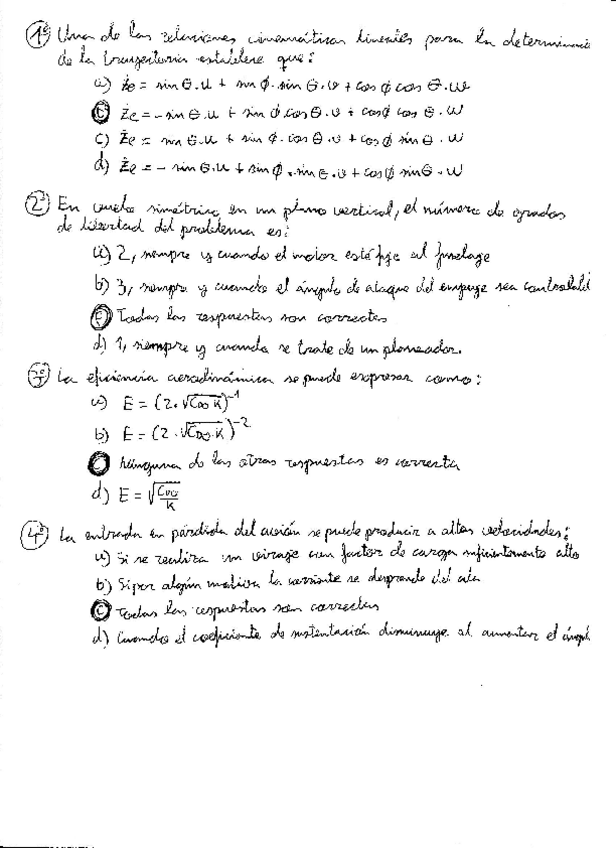 1º Una de las relaciones cinemáticas lineales para la determinación
de la trayectoria establece que:
a) że = sin θ.u + sin φ. sin θ.v + cos φ cos θ.w
b) że = - sin θ.u + sin φ.cos θ.v + cosφ cos θ.w
c) że = sin θ.u + sin φ. cos θ.v + cos φ sin θ.w
d) że = - sin θ.u + sin φ. sin θ.v + cos φ sin θ.w
2º En vuelo simétrico en un plano vertical, el número de grados
de libertad del problema es:
a) 2, siempre y cuando el motor esté fijo al fuselaje
b) 3, siempre y cuando el ángulo de ataque del empuje sea controlabl
c) Todas las respuestas son correctas
d) 1, siempre y cuando se trate de un planeador.
3º La eficiencia aerodinámica se puede expresar como:
a) E = (2.√CDo.K)⁻¹
b) E = (2.√CDo.K)⁻²
c) Ninguna de las otras respuestas es correcta
d) E = √CDo/K
4º La entrada en pérdida del avión se puede producir a altas velocidades:
a) Si se realiza un viraje con factor de carga suficientemente alto
b) Si por algún motivo la corriente se desprende del ala
c) Todas las respuestas son correctas
d) Cuando el coeficiente de sustentación disminuye al aumentar el ángul